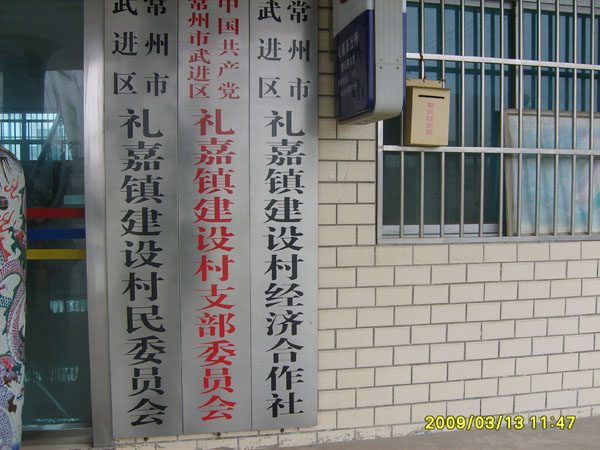 常州市
武进区
礼嘉镇建设村民委员会
中国共产党
常州市武进区
礼嘉镇建设村支部委员会
常州市
武进区
礼嘉镇建设村经济合作社
2009/03/13 11:47